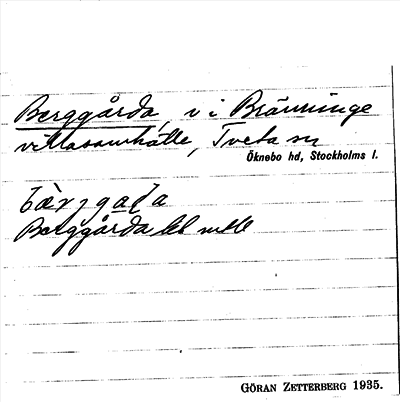 Berggårda, v i Bränninge
villasamhälle, Tveta sn
Öknebo hd, Stockholms l.
Berggårda
GÖRAN ZETTERBERG 1935.